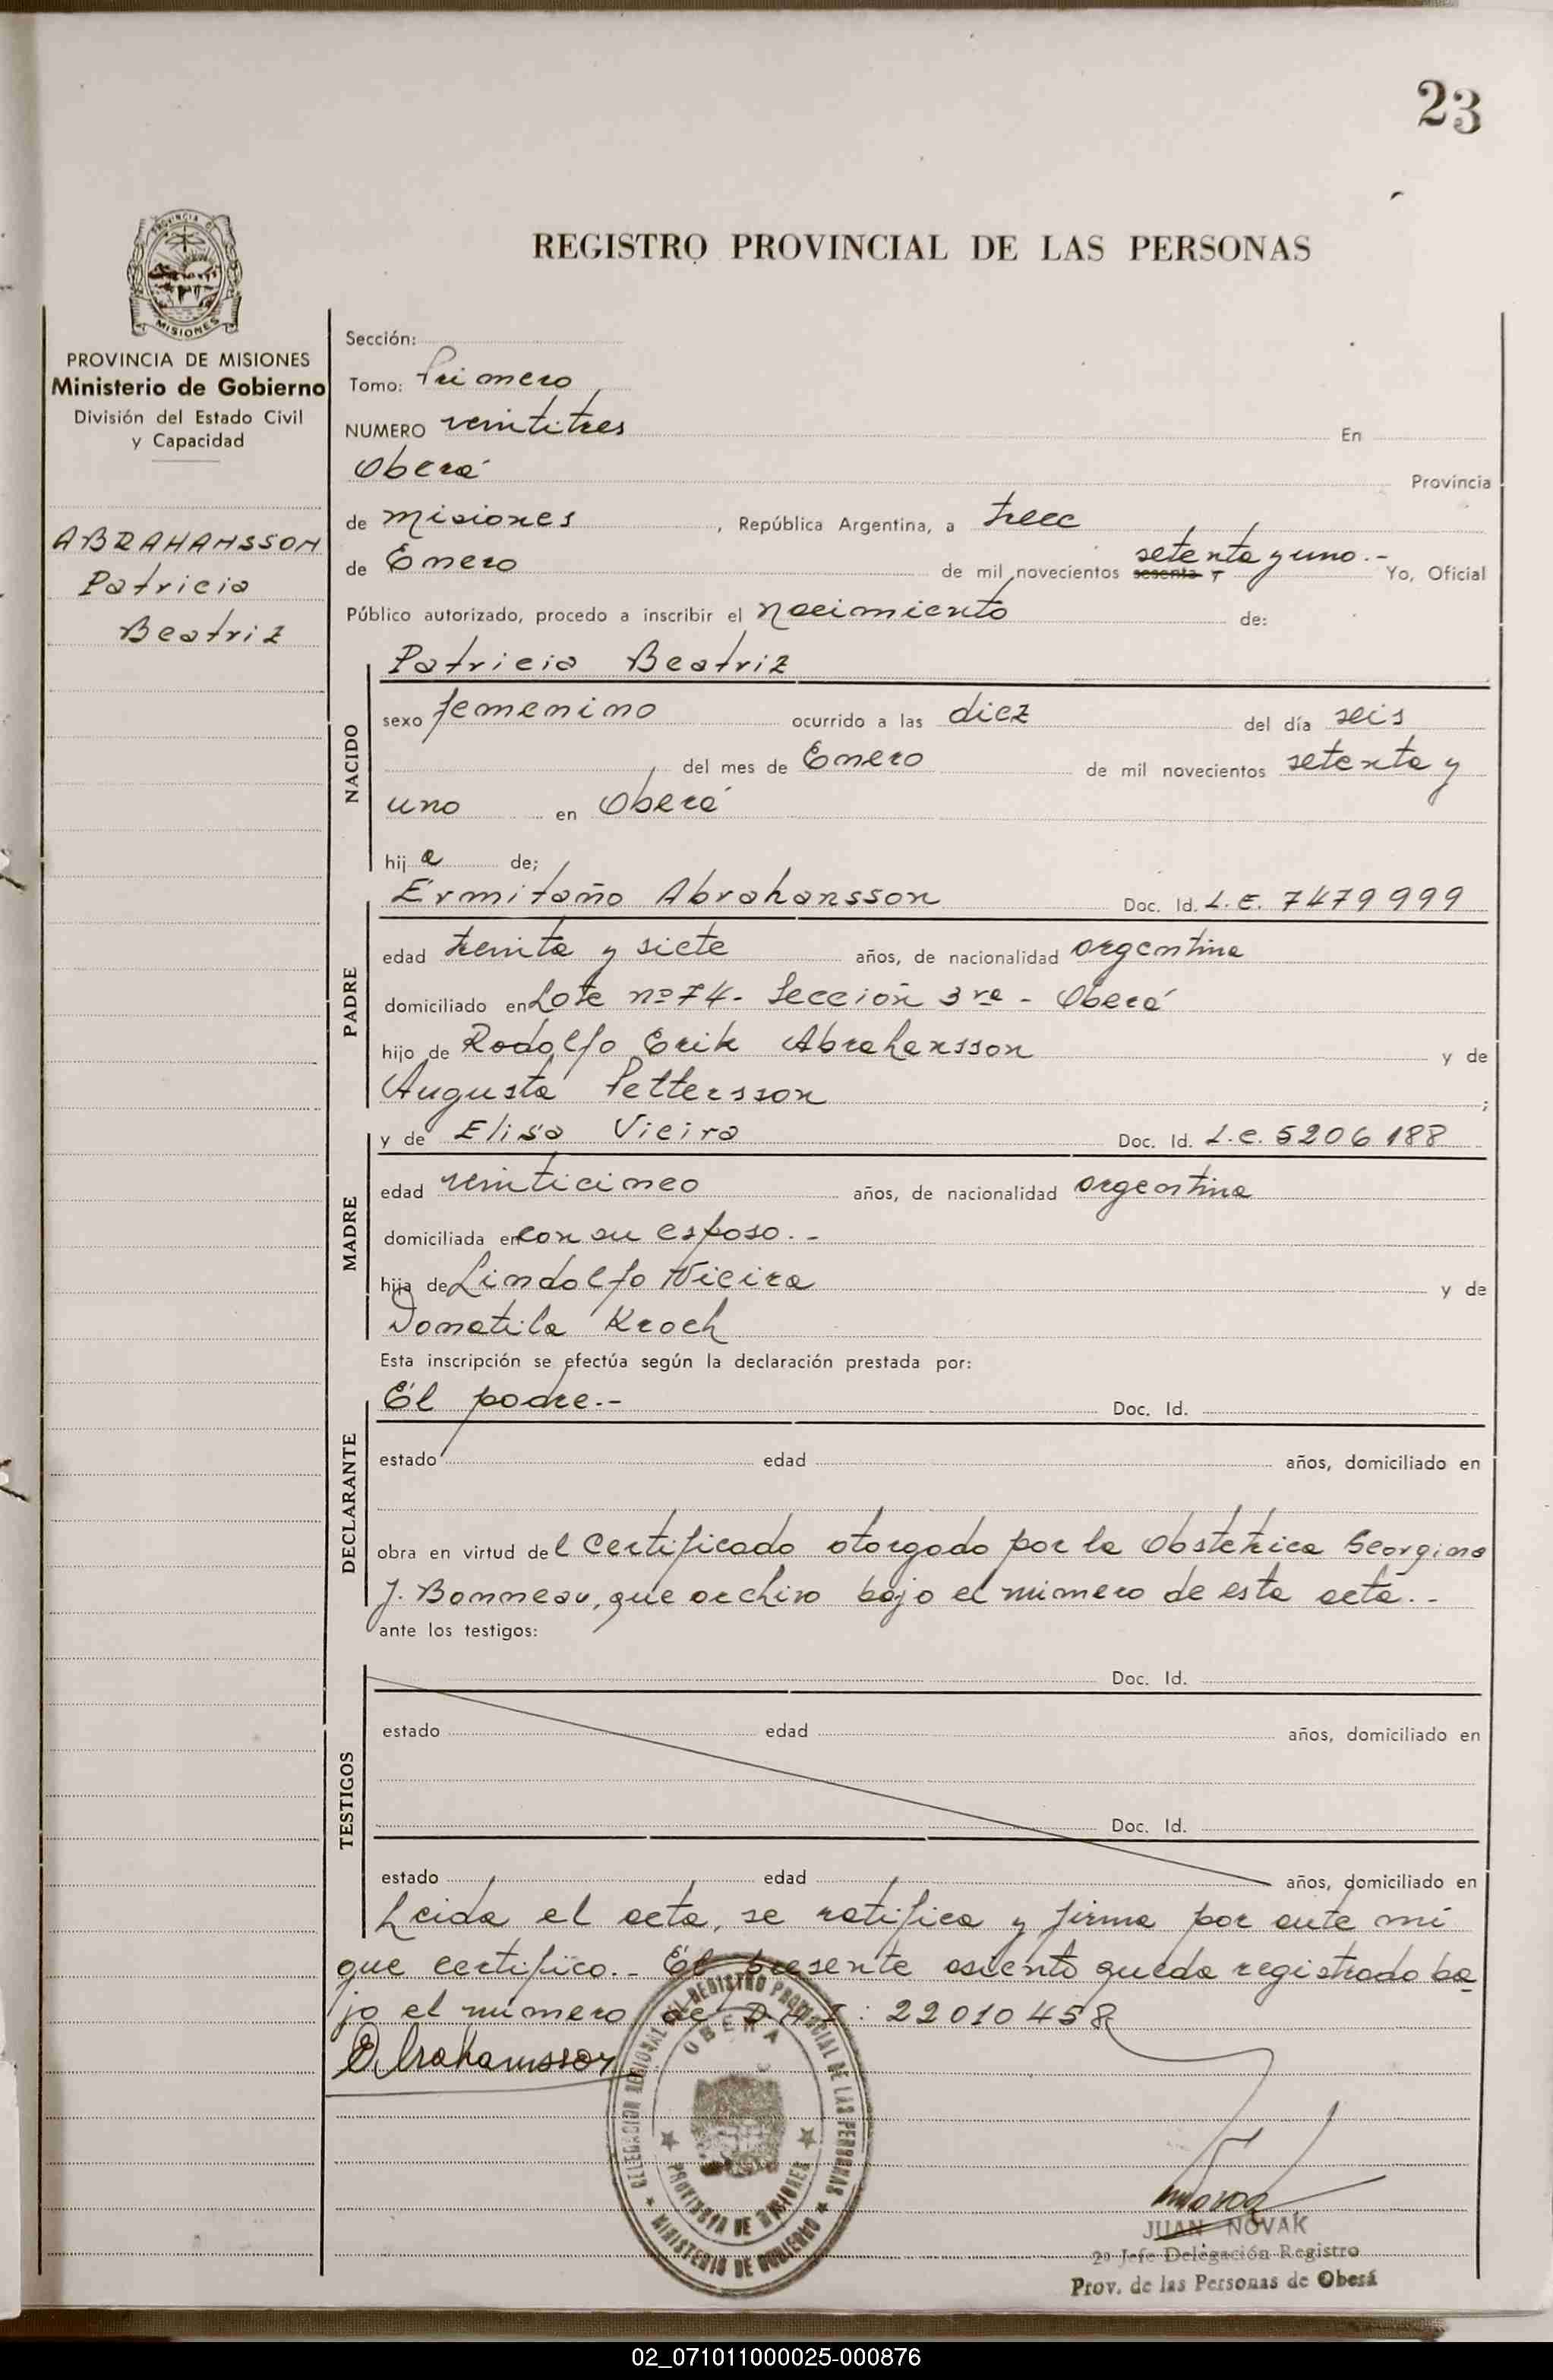 23
REGISTRO PROVINCIAL DE LAS PERSONAS
PROVINCIA DE MISIONES
Ministerio de Gobierno
División del Estado Civil
y Capacidad
ABRAHANSSON
Patricia
Beatriz
Sección:
Tomo: Primero
NUMERO veintitres En
Oberá Provincia
de Misiones , República Argentina, a trece
de Enero de mil novecientos sesenta y setenta y uno.- Yo, Oficial
Público autorizado, procedo a inscribir el nacimiento de:
NACIDO
Patricia Beatriz
sexo femenino ocurrido a las diez del día seis
del mes de Enero de mil novecientos setenta y
uno en Oberá
hija de;
PADRE
Ermitaño Abrahansson Doc. Id. L.E. 7479999
edad treinta y siete años, de nacionalidad argentina
domiciliado en Lote nº 74- Sección 3ra - Oberá
hijo de Rodolfo Erik Abrahansson y de
Augusta Pettersson ;
MADRE
y de Elisa Vieira Doc. Id. L.C. 5206188
edad veinticinco años, de nacionalidad argentina
domiciliada en con su esposo.-
hija de Lindolfo Vieira y de
Donatila Kroch
Esta inscripción se efectúa según la declaración prestada por:
DECLARANTE
El padre.- Doc. Id.
estado edad años, domiciliado en
obra en virtud del Certificado otorgado por la Obstetrica Georgina
J. Bonneau, que archivo bajo el número de esta acta.-
ante los testigos:
TESTIGOS
Doc. Id.
estado edad años, domiciliado en
Doc. Id.
estado edad años, domiciliado en
Leida el acta, se ratifica y firma por ante mí
que certifico.- El presente asiento queda registrado ba
jo el número de D.N.I: 22010458
E Abrahamsson
DELEGACION REGIONAL DEL REGISTRO PROVINCIAL DE LAS PERSONAS
OBERA
PROVINCIA DE MISIONES
MINISTERIO DE GOBIERNO
JUAN NOVAK
2º Jefe Delegación Registro
Prov. de las Personas de Oberá
02_071011000025-000876